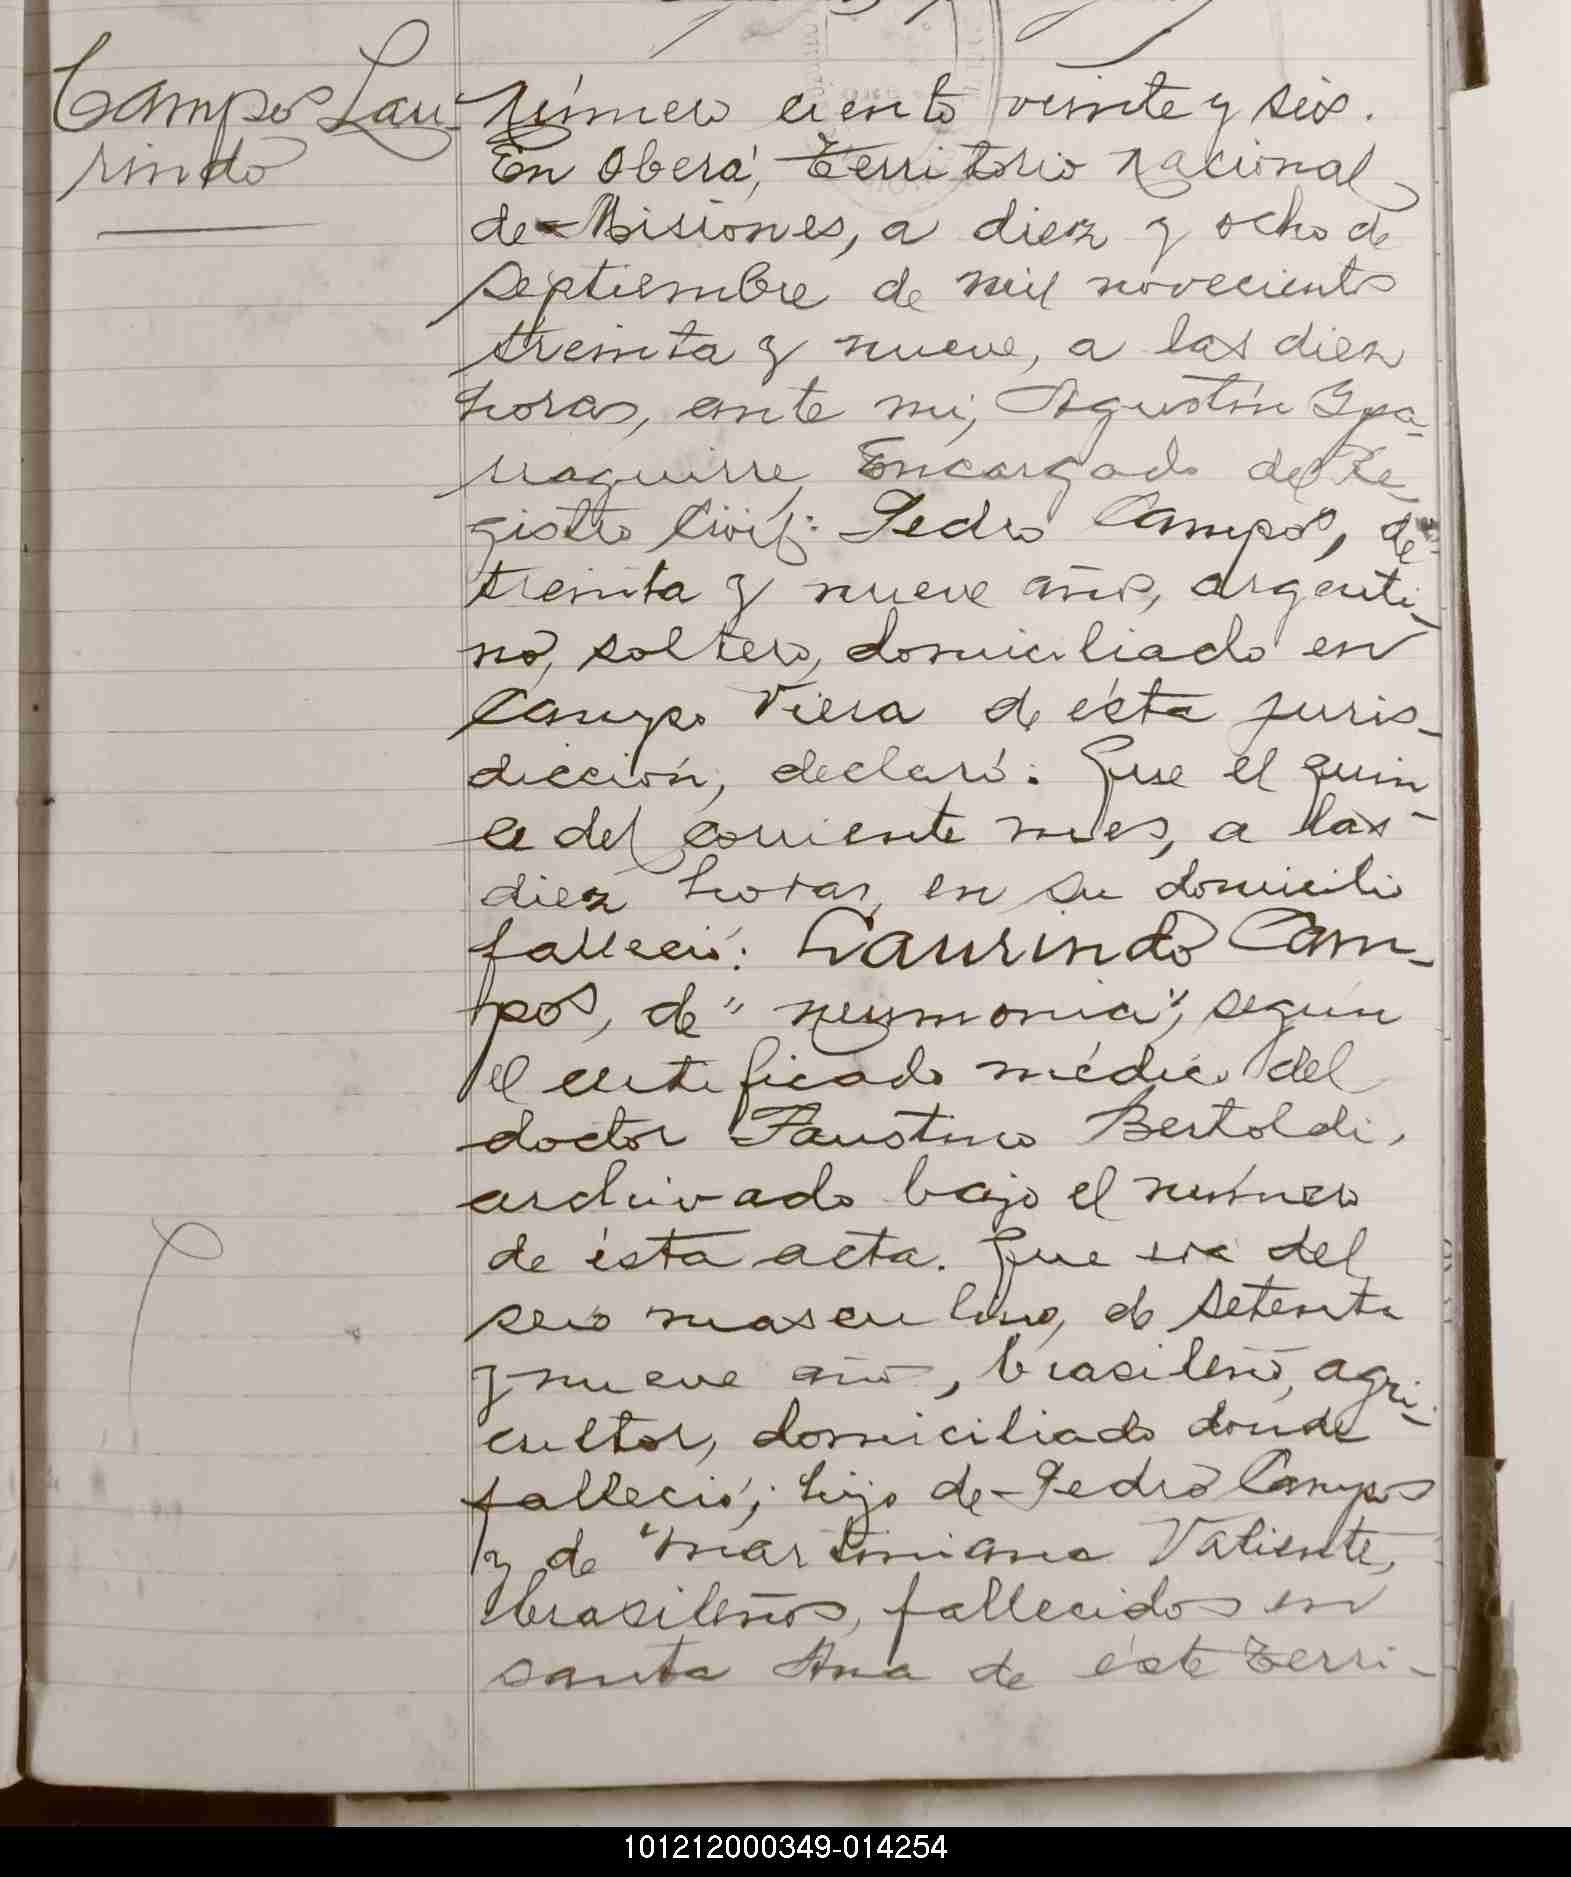 Campos Lau-
rindo
Número ciento veinte y seis.
En Oberá, Territorio Nacional
de Misiones, a diez y ocho de
septiembre de mil novecientos
treinta y nueve, a las diez
horas, ante mi, Agustín Ypa-
rraguirre, Encargado del Re-
gistro Civil: Pedro Campos, de
treinta y nueve años, argenti-
no, soltero, domiciliado en
Campo Viera de ésta juris-
dicción, declaró: Que el quin-
ce del corriente mes, a las
diez horas, en su domicilio
falleció: Laurindo Cam-
pos, de "neumonia", según
el certificado médico del
doctor Faustino Bertoldi,
archivado bajo el número
de ésta acta. Que era del
sexo masculino, de setenta
y nueve años, brasileño, agri-
cultor, domiciliado donde
falleció; hijo de Pedro Campos
y de Martiniana Valiente,
brasileños, fallecidos en
Santa Ana de éste Terri-
101212000349-014254